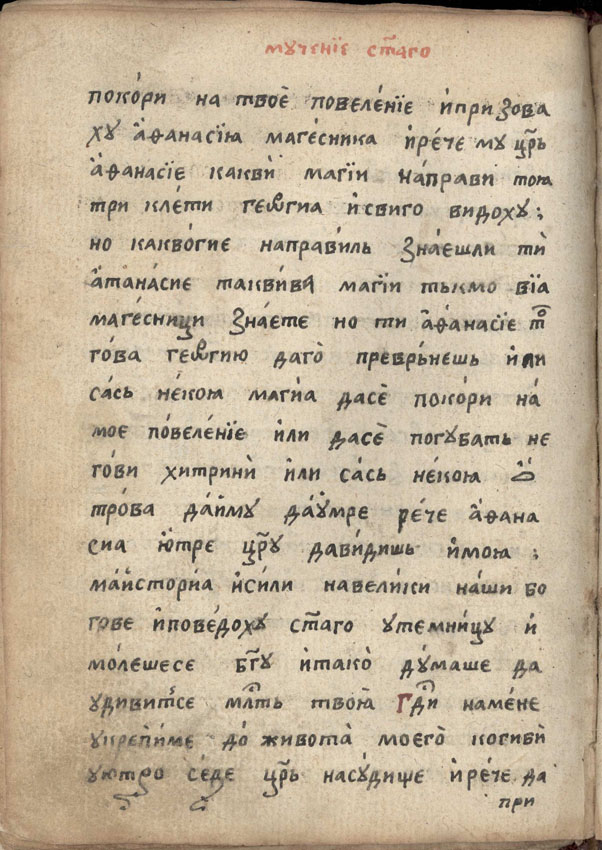 мꙋченїе ст҃аго
поко́ри на твоѐ повеле́нїе и҆призова
хꙋ а҆ѳанасїꙗ маге́сника и҆ре́че мꙋ цр҃ь
а҆ѳанасїе какви̇̀ магїи на́прави тою
три кле́ти геѡргиа и҆свиго видохꙋ ;
но какво́гие напра́виль зна́ешли ти̇̀
а҆тана́сие такви́ва магїи тькмо вїа
маге́сници зна́ете но ти а҆ѳанасїе то҃
го́ва геѡ́ргию даго̀ преврь́нешь и҆ли
са́сь не́кою маги́а дасѐ поко́ри на́
мое по́веле́нїе и҆ли дасѐ погꙋбать не
го́ви хитринѝ и҆ли са́сь не́кою ѻ҆
тро́ва да́и҆мꙋ даꙋ҆мре ре́че а҆ѳана
сиа ю҆тре цр҃ꙋ дави́дишь и҆мою ;
ма́и҆сториꙗ и҆си́ли навели́ки на́ши бо
гове и҆пове́дохꙋ ст҃аго ꙋтемни́цꙋ и҆
мо́лешесе бг҃ꙋ и҆тако̀ дꙋ́маше да
ꙋдивит҃се мл҃ть твоꙗ̀ гд҃и наме́не
ꙋкрепи́ме до̀ живота̀ моего̀ когибѝ
ꙋю҆тро се́де цр҃ь насꙋ́дище и҆ре́че да
при